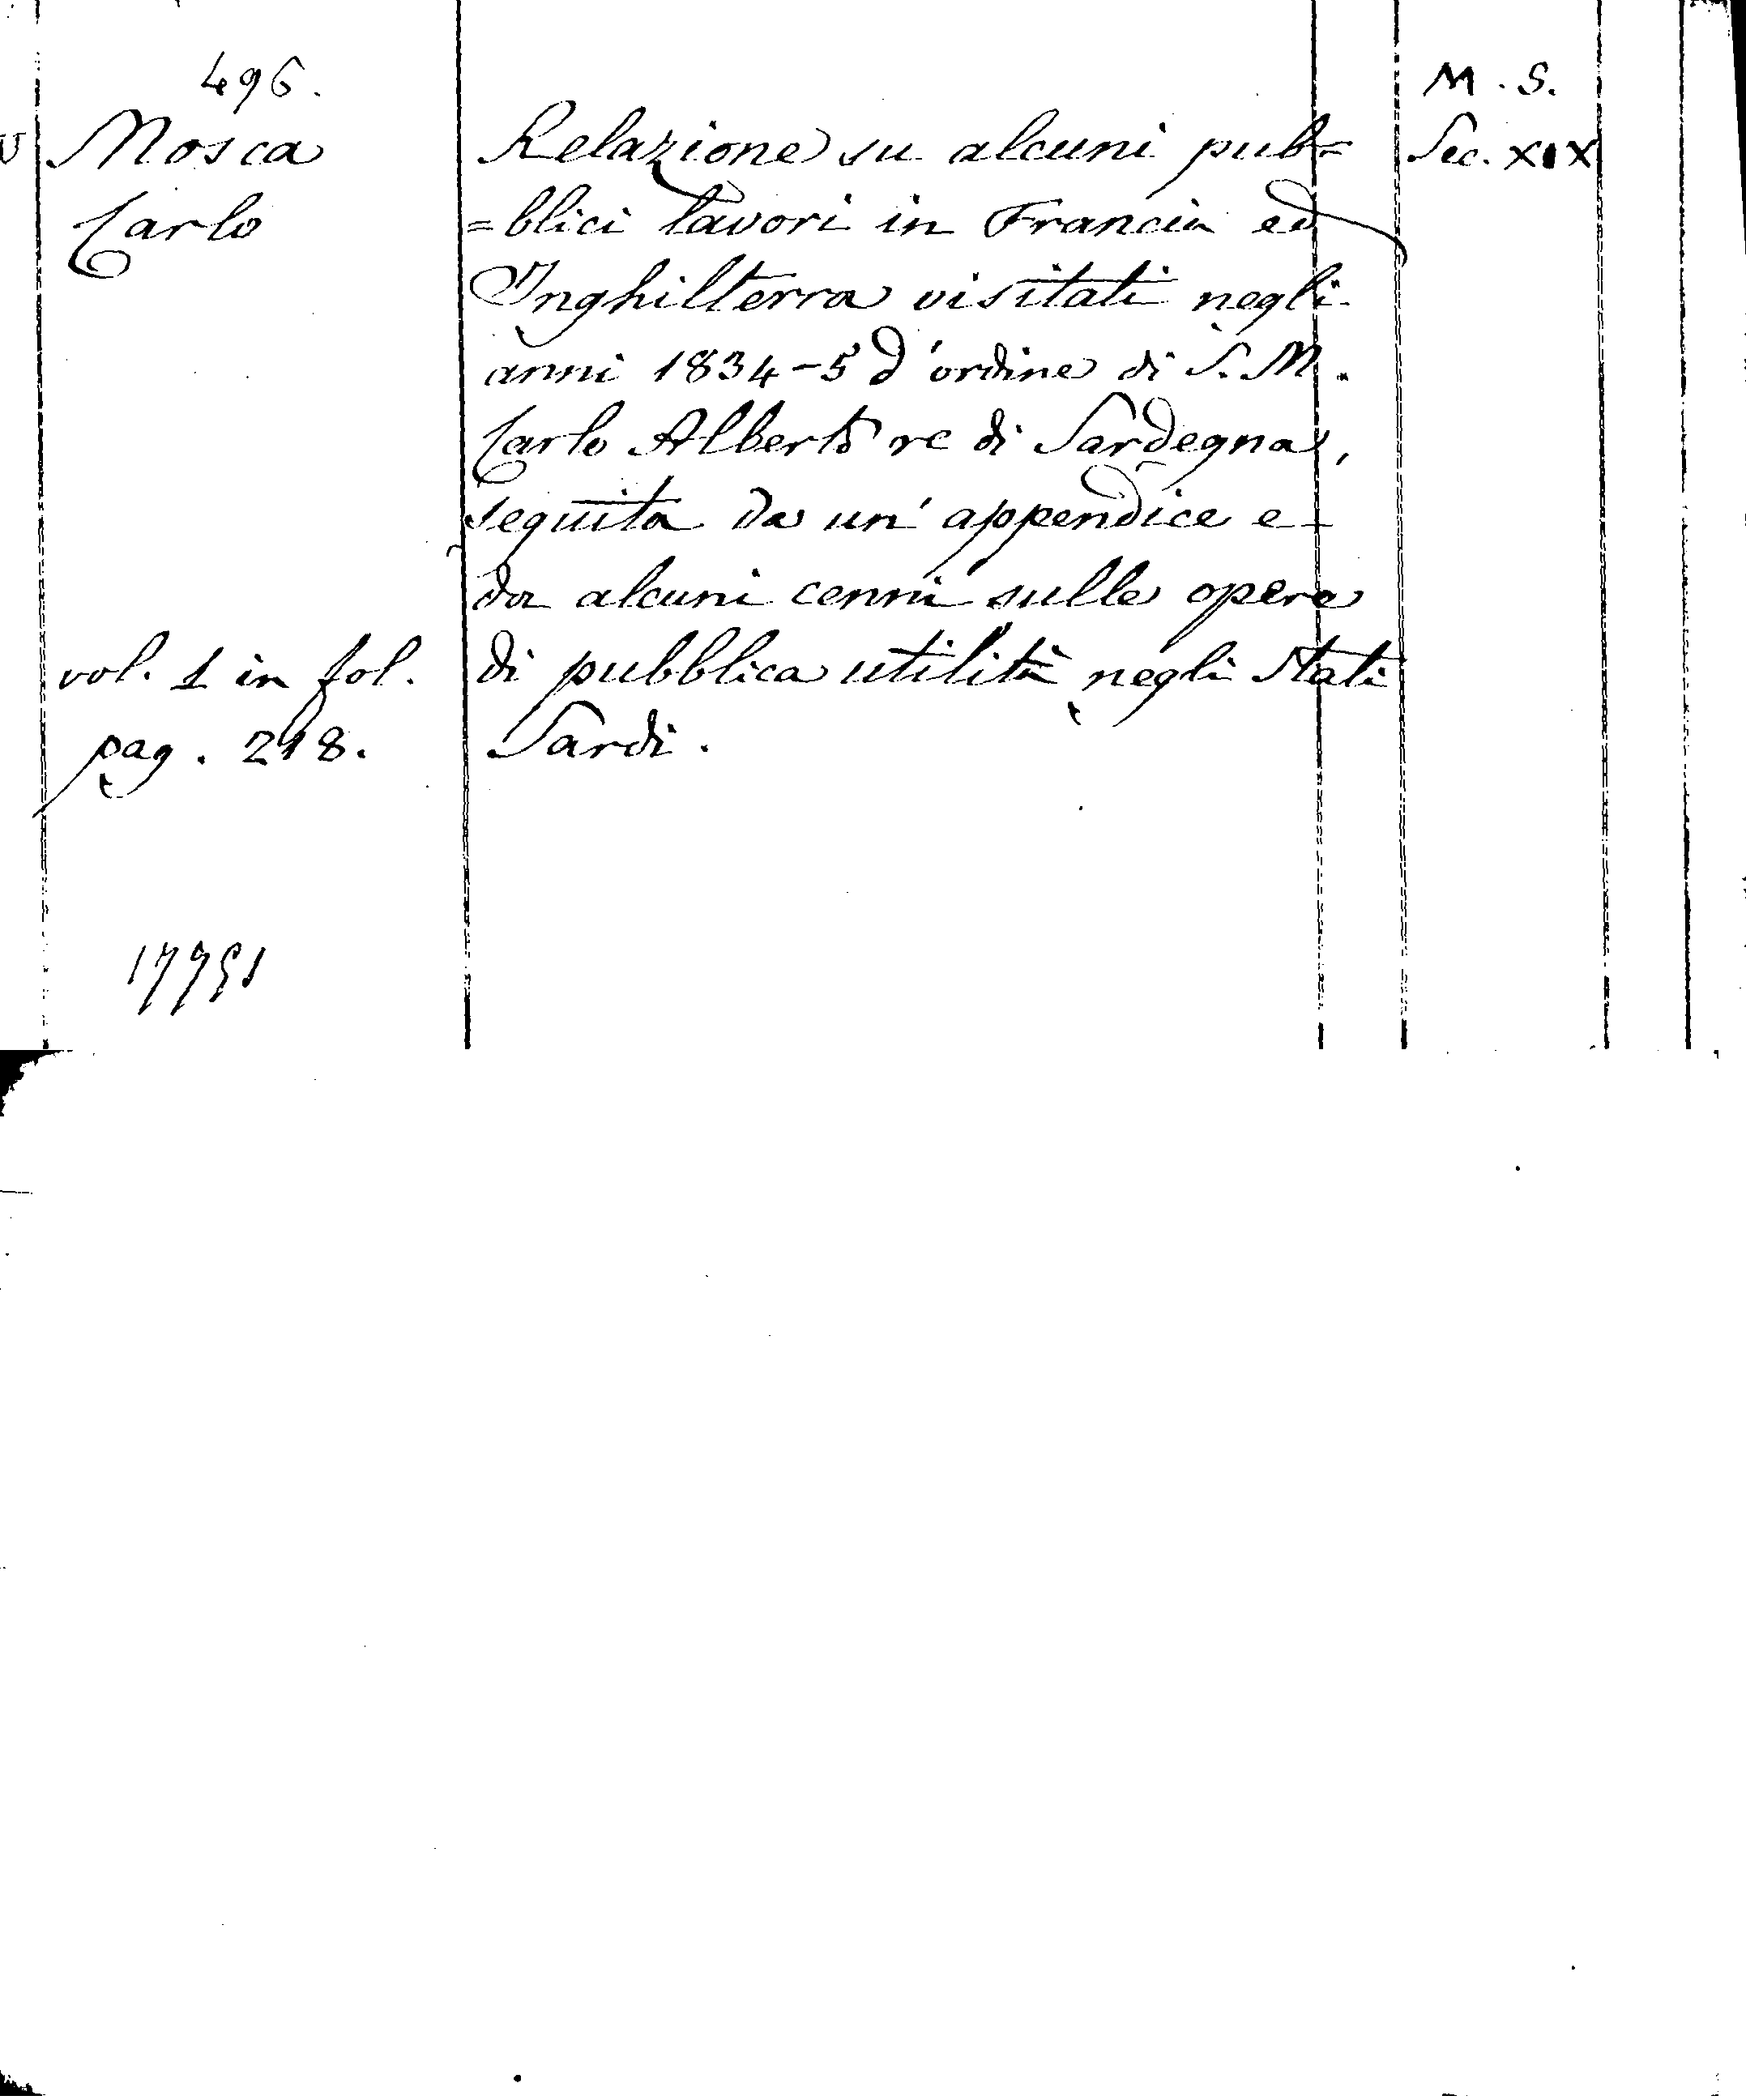 496.
Mosca
Carlo
vol. 1 in fol.
pag. 218.
17751
Relazione su alcuni pub=
=blici lavori in Francia ed
Inghilterra visitati negli
anni 1834-5 d'ordine di S. M.
Carlo Alberto re di Sardegna,
seguita da un' appendice e
da alcuni cenni sulle opere
di pubblica utilità negli Stati
Sardi.
M. S.
Sec. XIX